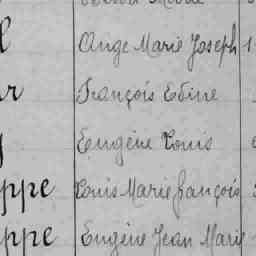 Ange Marie Joseph 1
r François Edine
Eugène Louis
ppe Louis Marie françois
ppe Eugène Jean Marie